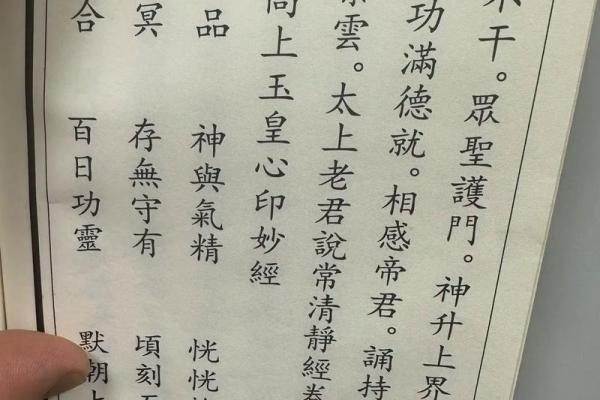 干。眾聖護門。神升上界
功滿德就。相感帝君。誦持
雲。太上老君說常清靜經
尚上玉皇心印妙經
品 神與氣精 恍恍
冥 存無守有 頃刻
合 百日功靈 默朝上